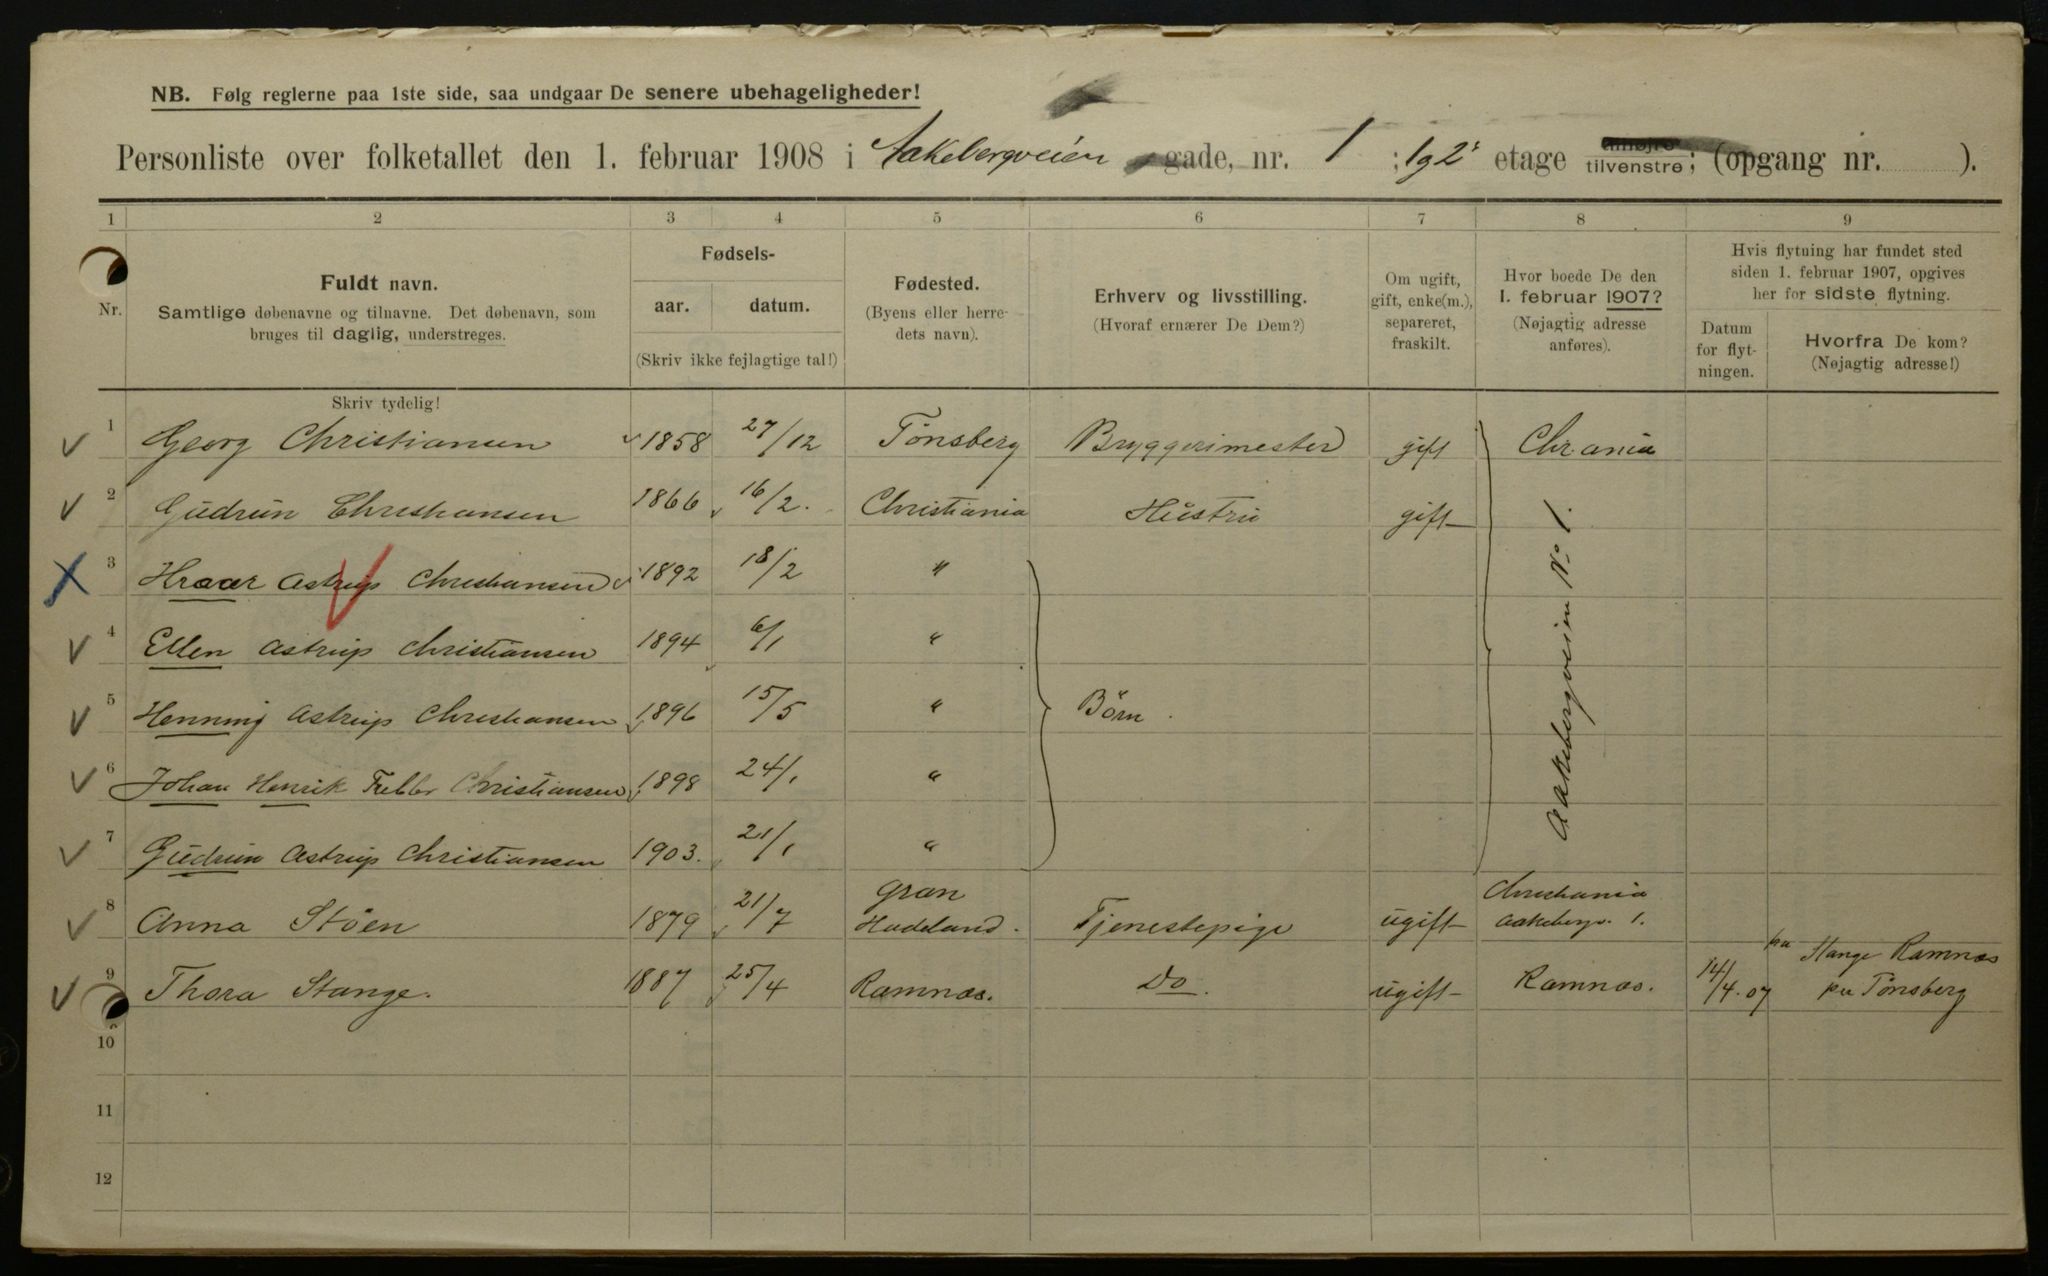 NB. Følg reglerne paa 1ste side, saa undgaar De senere ubehageligheder!
Personliste over folketallet den 1. februar 1908 i Aakebergveien gade, nr. 1 ; 1 og 2 etage tilhøjre tilvenstre; (opgang nr. ).
1 2 3 4 5 6 7 8 9
Nr.
Fuldt navn.
Samtlige døbenavne og tilnavne. Det døbenavn, som
bruges til daglig, understreges.
Fødsels-
aar. datum.
(Skriv ikke fejlagtige tal!)
Fødested.
(Byens eller herre-
dets navn).
Erhverv og livsstilling.
(Hvoraf ernærer De Dem?)
Om ugift,
gift, enke(m.),
separeret,
fraskilt.
Hvor boede De den
1. februar 1907?
(Nøjagtig adresse
anføres).
Hvis flytning har fundet sted
siden 1. februar 1907, opgives
her for sidste flytning.
Datum
for flyt-
ningen.
Hvorfra De kom?
(Nøjagtig adresse!)
Skriv tydelig!
1 Georg Christiansen 1858 27/12 Tönsberg Bryggerimester gift Chr.ania
2 Gudrun Christiansen 1866 16/2. Christiania Hustru gift
Aakebergveien No 1.
3 Hroar Astrup Christiansen 1892 18/2 "
4 Ellen Astrup Christiansen 1894 6/1 "
5 Henning Astrup Christiansen 1896 15/5 " Börn.
6 Johan Henrik Christiansen 1898 24/1 "
7 Gudrun Astrup Christiansen 1903. 21/1 "
8 Anna Stöen 1879 21/7 Gran Hadeland. Tjenestepige ugift Christiania Aakebergv. 1.
9 Thora Stange. 1887 25/4 Ramnæs. Do. ugift Ramnæs. 14/4.07 Stange Ramnæs
pr Tönsberg
10
11
12